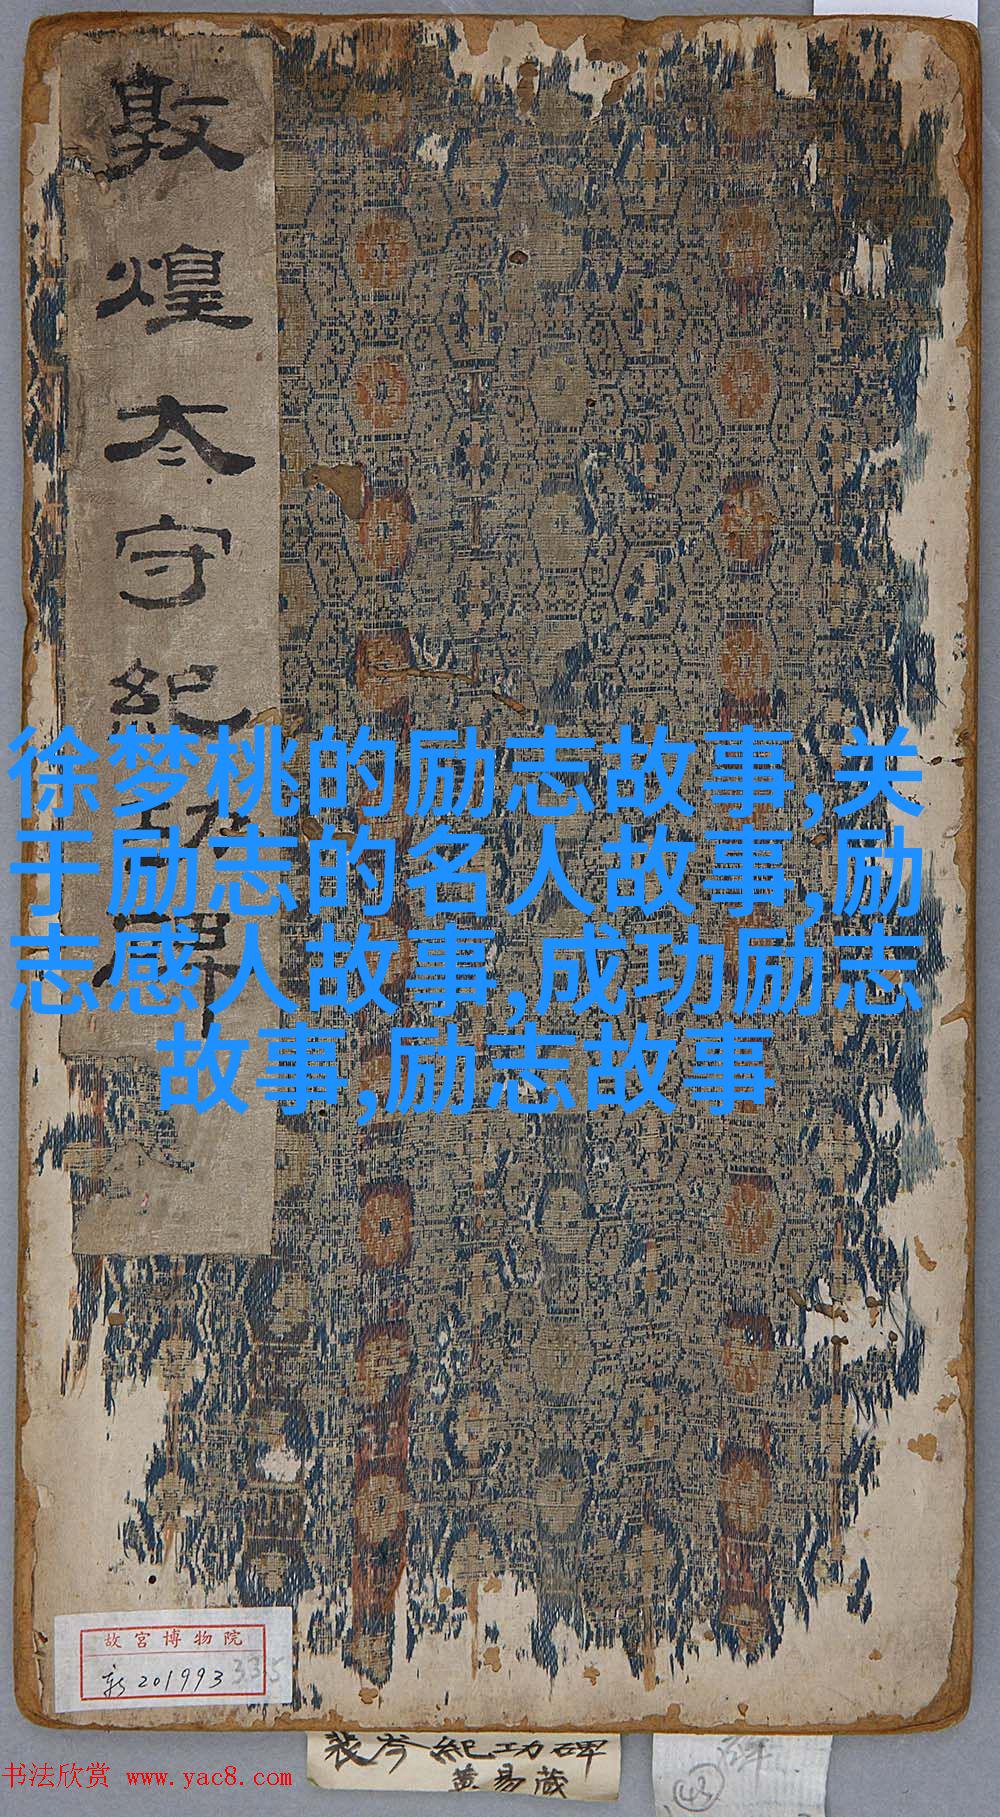 敦煌太守紀功碑
徐梦桃的励志故事,关
于励志的名人故事,励
志感人故事,成功励志
故事,励志故事
故宫博物院
新201993 335
裴岑紀功碑
黄易藏
书法欣赏 www.yac8.com